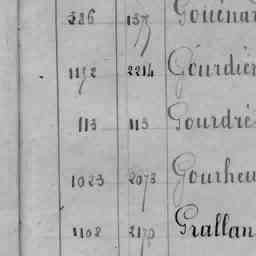 326 137 Gouéna
1192 2214 Gourdie
113 113 Gourdré
1023 2073 Gourheu
1102 2170 Grallan